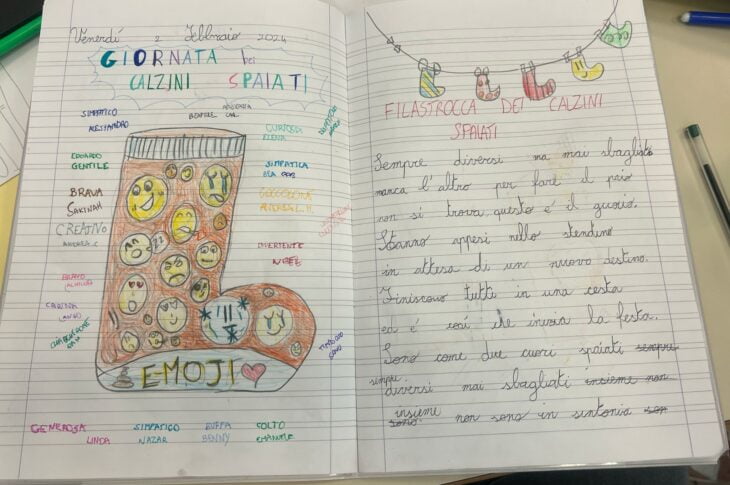 Venerdí 2 Febbraio 2024
GIORNATA DEI
CALZINI SPAIATI
SIMPATICO
ALESSANDRO
CURIOSA
ELENA
EDOARDO
GENTILE
SIMPATICA
BEA
BRAVA
SAKINAH
COCCOLONA
CREATIVO
ANDREA C
DIVERTENTE
BRAVO
EMOJI
GENEROSA
LINDA
SIMPATICO
NAZAR
BUFFA
BENNY
COLTO
EMANUELE
FILASTROCCA DEI CALZINI
SPAIATI
Sempre diversi ma mai sbagliato
manca l'altro per fare il paio
non si trova questo é il guaio.
Stanno appesi nello stendino
in attesa di un nuovo destino.
Finiscono tutti in una cesta
ed é cosí che inizia la festa.
Sono come due cuori spaiati sempre
sempre diversi mai sbagliati insieme non
insieme sono non sono in sintonia son